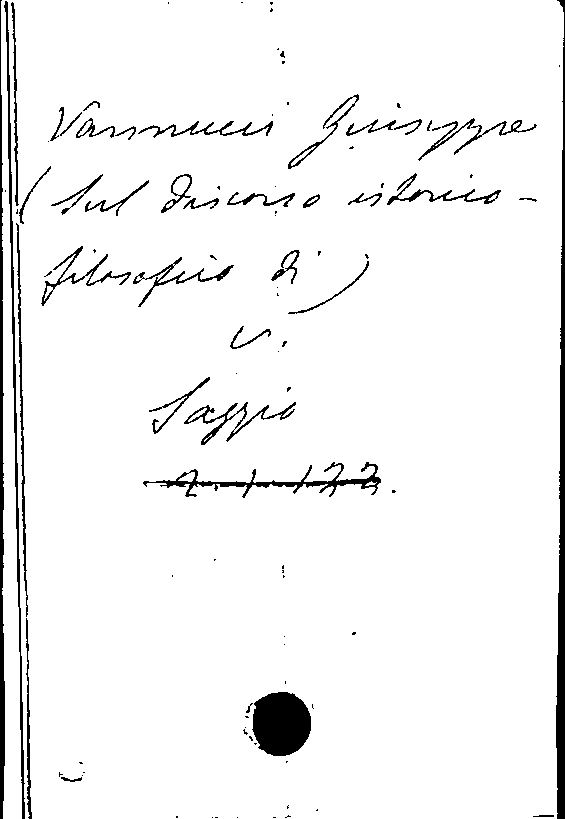 Vannucci Giuseppe
(Sul discorso istorico-
filosofico di)
v.
Saggio
2. 1. 122.